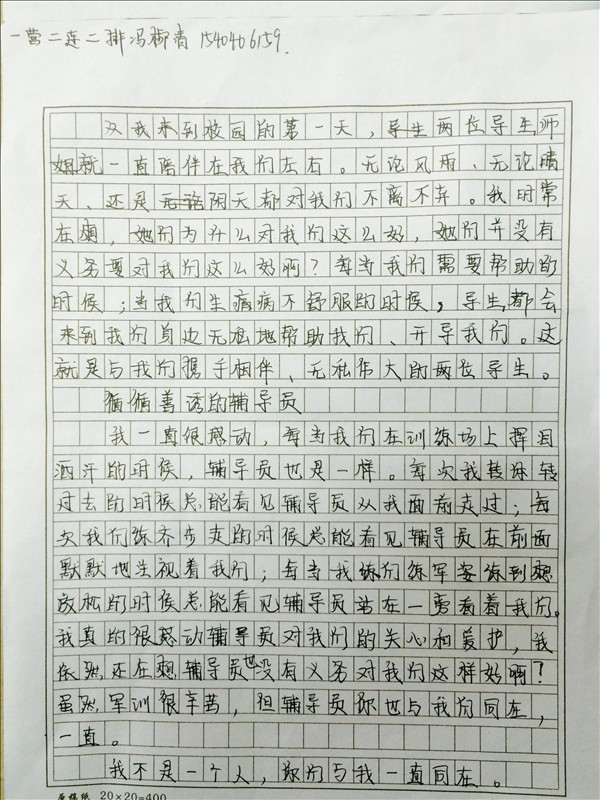 一营二连二排冯柳青 1540406159.
从我来到校园的第一天，导生两位导生师
姐就一直陪伴在我们左右。无论风雨、无论晴
天、还是无论阴天都对我们不离不弃。我时常
在想，她们为什么对我们这么好，她们并没有
义务要对我们这么好啊？每当我们需要帮助的
时候；当我们生病病不舒服的时候，导生都会
来到我们身边无私地帮助我们、开导我们。这
就是与我们携手相伴、无私伟大的两位导生。
循循善诱的辅导员
我一直很感动，每当我们在训练场上挥泪
洒汗的时候，辅导员也是一样。每次我转体转
过去的时候总能看见辅导员从我面前走过；每
次我们练齐步走的时候总能看见辅导员在前面
默默地注视着我们；每当我练们练军姿练到想
放松的时候总能看见辅导员站在一旁看着我们。
我真的很感动辅导员对我们的关心和爱护，我
依然还在想辅导员也没有义务对我们这样好啊？
虽然军训很辛苦，但辅导员你也与我们同在，
一直。
我不是一个人，你们与我一直同在。
原稿纸 20×20=400